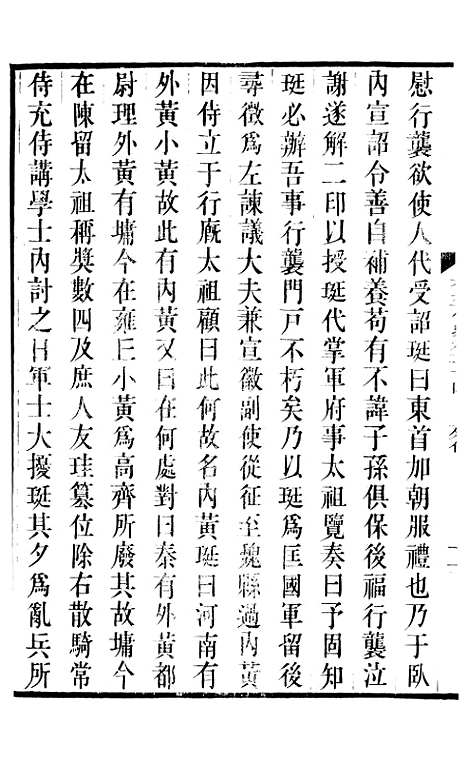 慰行襲欲使人代受詔珽曰東首加朝服禮也乃于臥
內宣詔令善自補養苟有不諱子孫俱保後福行襲泣
謝遂解二印以授珽代掌軍府事太祖覽奏曰予固知
珽必辦吾事行襲門戸不朽矣乃以珽爲匡國軍留後
尋徵爲左諫議大夫兼宣徽副使從征至魏縣過內黃
因侍立于行廐太祖顧曰此何故名內黃珽曰河南有
外黃小黃故此有內黃又曰在何處對曰秦有外黃都
尉理外黃有墉今在雍丘小黃爲高齊所廢其故墉今
在陳留太祖稱獎數四及庶人友珪簒位除右散騎常
侍充侍講學士內討之日軍士大擾珽其夕爲亂兵所